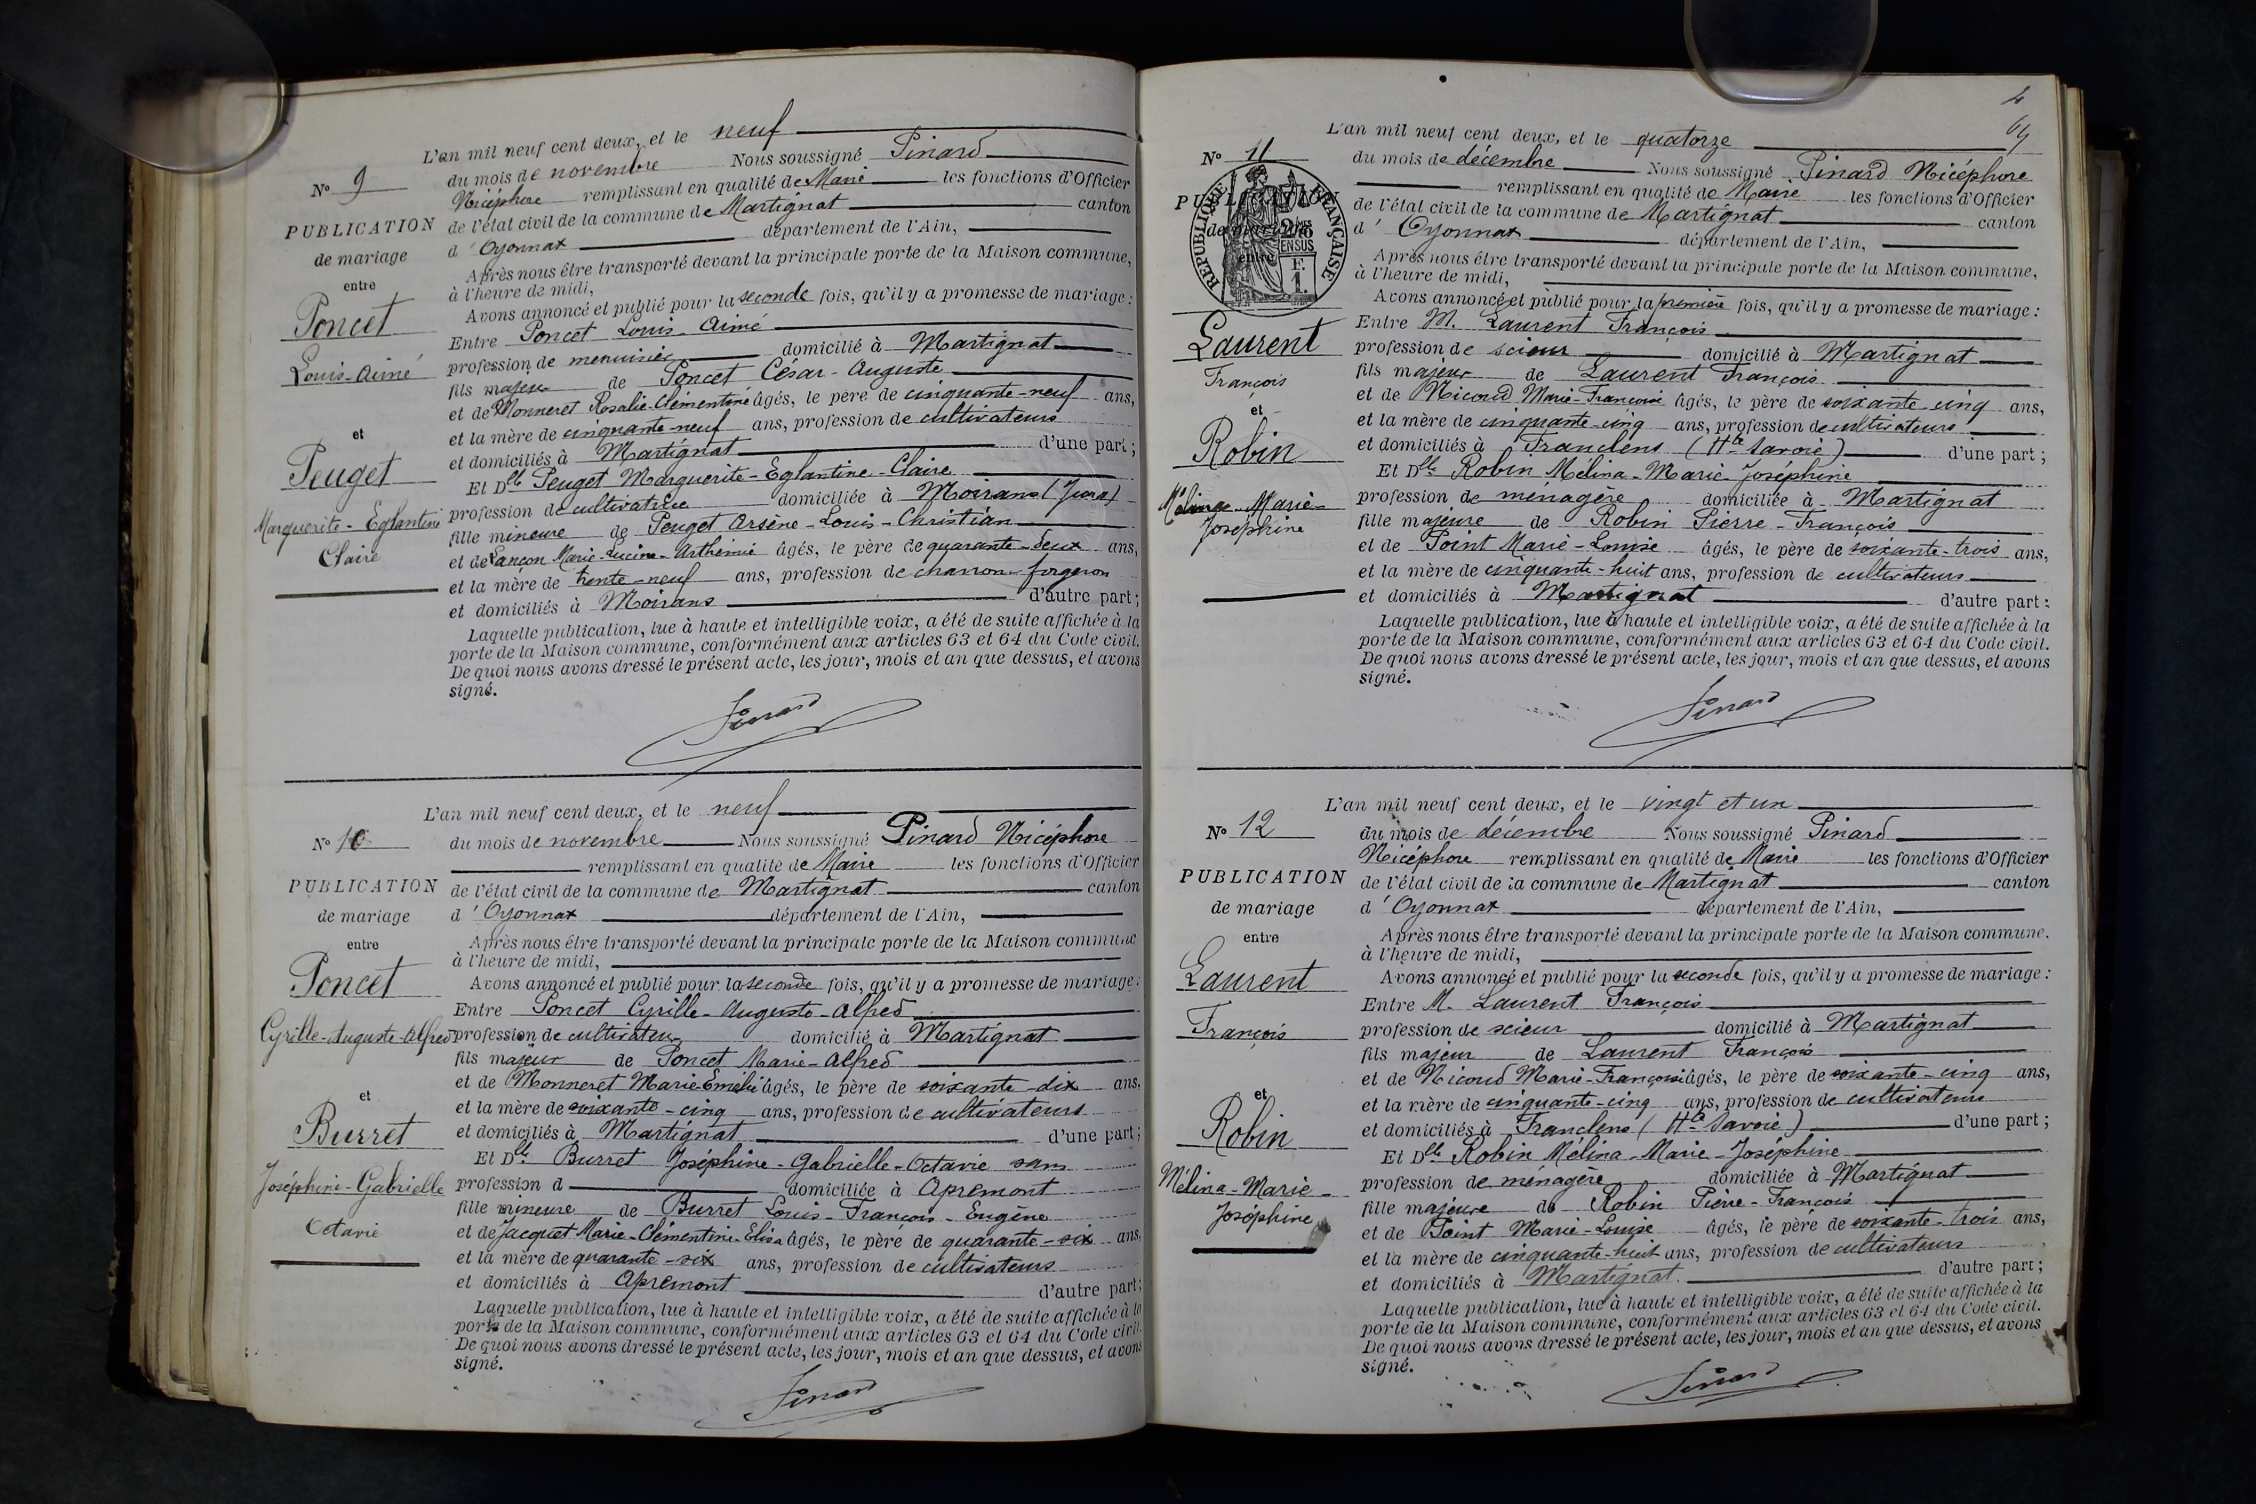 L'an mil neuf cent deux, et le neuf
du mois de novembre Nous soussigné Pinard
Nicéphore remplissant en qualité de Maire les fonctions d'Officier
de l'état civil de la commune de Martignat canton
d'Oyonnax département de l'Ain,
Après nous être transporté devant la principale porte de la Maison commune,
à l'heure de midi,
Avons annoncé et publié pour la seconde fois, qu'il y a promesse de mariage :
Entre Poncet Louis-Aimé
profession de menuisier domicilié à Martignat
fils majeur de Poncet César-Auguste
et de Monneret Rosalie-Clémentine âgés, le père de cinquante-neuf ans,
et la mère de cinquante-neuf ans, profession de cultivateurs
et domiciliés à Martignat d'une part ;
Et Dlle Peuget Marguerite-Eglantine-Claire
profession de cultivatrice domiciliée à Moirans (Jura)
fille mineure de Peuget Arsène-Louis-Christian
et de Lançon Marie-Lucine-Arthémie âgés, le père de quarante-deux ans,
et la mère de trente-neuf ans, profession de charron-forgeron
et domiciliés à Moirans d'autre part ;
Laquelle publication, lue à haute et intelligible voix, a été de suite affichée à la
porte de la Maison commune, conformément aux articles 63 et 64 du Code civil.
De quoi nous avons dressé le présent acte, les jour, mois et an que dessus, et avons
signé.
Pinard
N° 9
PUBLICATION
de mariage
entre
Poncet
Louis-Aimé
et
Peuget
Marguerite-Eglantine
Claire
L'an mil neuf cent deux, et le neuf
du mois de novembre Nous soussigné Pinard Nicéphore
remplissant en qualité de Maire les fonctions d'Officier
de l'état civil de la commune de Martignat canton
d'Oyonnax département de l'Ain,
Après nous être transporté devant la principale porte de la Maison commune
à l'heure de midi,
Avons annoncé et publié pour la seconde fois, qu'il y a promesse de mariage :
Entre Poncet Cyrille-Auguste-Alfred
profession de cultivateur domicilié à Martignat
fils majeur de Poncet Marie-Alfred
et de Monneret Marie-Emélie âgés, le père de soixante-dix ans,
et la mère de soixante-cinq ans, profession de cultivateurs
et domiciliés à Martignat d'une part ;
Et Dlle Burret Joséphine-Gabrielle-Octavie sans
profession d domiciliée à Apremont
fille mineure de Burret Louis-François-Eugène
et de Jacquet Marie-Clémentine-Elisa âgés, le père de quarante-six ans,
et la mère de quarante-six ans, profession de cultivateurs
et domiciliés à Apremont d'autre part ;
Laquelle publication, lue à haute et intelligible voix, a été de suite affichée à la
porte de la Maison commune, conformément aux articles 63 et 64 du Code civil.
De quoi nous avons dressé le présent acte, les jour, mois et an que dessus, et avons
signé.
Pinard
N° 10
PUBLICATION
de mariage
entre
Poncet
Cyrille-Auguste-Alfred
et
Burret
Joséphine-Gabrielle
Octavie
64
L'an mil neuf cent deux, et le quatorze
du mois de décembre Nous soussigné Pinard Nicéphore
remplissant en qualité de Maire les fonctions d'Officier
de l'état civil de la commune de Martignat canton
d'Oyonnax département de l'Ain,
Après nous être transporté devant la principale porte de la Maison commune,
à l'heure de midi,
Avons annoncé et publié pour la première fois, qu'il y a promesse de mariage :
Entre M. Laurent François
profession de scieur domicilié à Martignat
fils majeur de Laurent François
et de Nicoud Marie-Françoise âgés, le père de soixante-cinq ans,
et la mère de cinquante-cinq ans, profession de cultivateurs
et domiciliés à Franclens (Hte Savoie) d'une part ;
Et Dlle Robin Mélina-Marie-Joséphine
profession de ménagère domiciliée à Martignat
fille majeure de Robin Pierre-François
et de Point Marie-Louise âgés, le père de soixante-trois ans,
et la mère de cinquante-huit ans, profession de cultivateurs
et domiciliés à Martignat d'autre part ;
Laquelle publication, lue à haute et intelligible voix, a été de suite affichée à la
porte de la Maison commune, conformément aux articles 63 et 64 du Code civil.
De quoi nous avons dressé le présent acte, les jour, mois et an que dessus, et avons
signé.
Pinard
N° 11
PUBLICATION
de mariage
entre
RÉPUBLIQUE FRANÇAISE
EN SUS
F.
1.
Laurent
François
et
Robin
Mélina-Marie-
Joséphine
L'an mil neuf cent deux, et le vingt et un
du mois de décembre Nous soussigné Pinard
Nicéphore remplissant en qualité de Maire les fonctions d'Officier
de l'état civil de la commune de Martignat canton
d'Oyonnax département de l'Ain,
Après nous être transporté devant la principale porte de la Maison commune.
à l'heure de midi,
Avons annoncé et publié pour la seconde fois, qu'il y a promesse de mariage :
Entre M. Laurent François
profession de scieur domicilié à Martignat
fils majeur de Laurent François
et de Nicoud Marie-Françoise âgés, le père de soixante-cinq ans,
et la mère de cinquante-cinq ans, profession de cultivateurs
et domiciliés à Franclens (Hte Savoie) d'une part ;
Et Dlle Robin Mélina-Marie-Joséphine
profession de ménagère domiciliée à Martignat
fille majeure de Robin Pierre-François
et de Point Marie-Louise âgés, le père de soixante-trois ans,
et la mère de cinquante-huit ans, profession de cultivateurs
et domiciliés à Martignat d'autre part ;
Laquelle publication, lue à haute et intelligible voix, a été de suite affichée à la
porte de la Maison commune, conformément aux articles 63 et 64 du Code civil.
De quoi nous avons dressé le présent acte, les jour, mois et an que dessus, et avons
signé.
Pinard
N° 12
PUBLICATION
de mariage
entre
Laurent
François
et
Robin
Mélina-Marie-
Joséphine